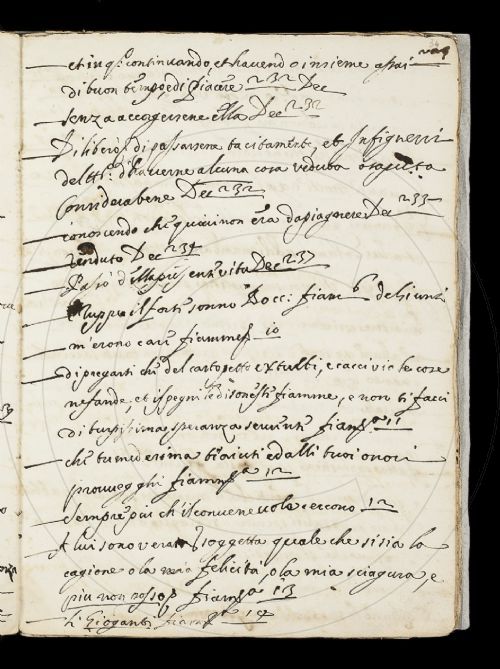 et in q.o continuando, et havendo insieme assai
di buon tempo, e di piacere 232 Dec
senza accorgersene ella Dec 232
Diliberò di passarsene tacitamente, et Infignersi
haverne alcuna cosa veduta o saputa
Considera bene Dec 232
conoscendo che quivi non era da piagnere Dec 233
Renduto Dec 234
Passò d' presente vita Dec 237
Ruppe il forte sonno Bocc: fiam
m'erono cari fiammet 10
di pregarti che del casto petto extulti, e cacci via le cose
nefande, et ispegni le disoneste fiamme, e non ti facci
di turpissima speranza servente fiam 11
che tu medesima t'aiuti ed alli tuoi onori
provvegghi fiam 12
sempre più ch'il convenevole cercono 12
A lui sono veram soggetta quale che si sia la
cagione o la mia felicità, o la mia sciagura, e
più non posso fiam 13
Giganti fiam 14